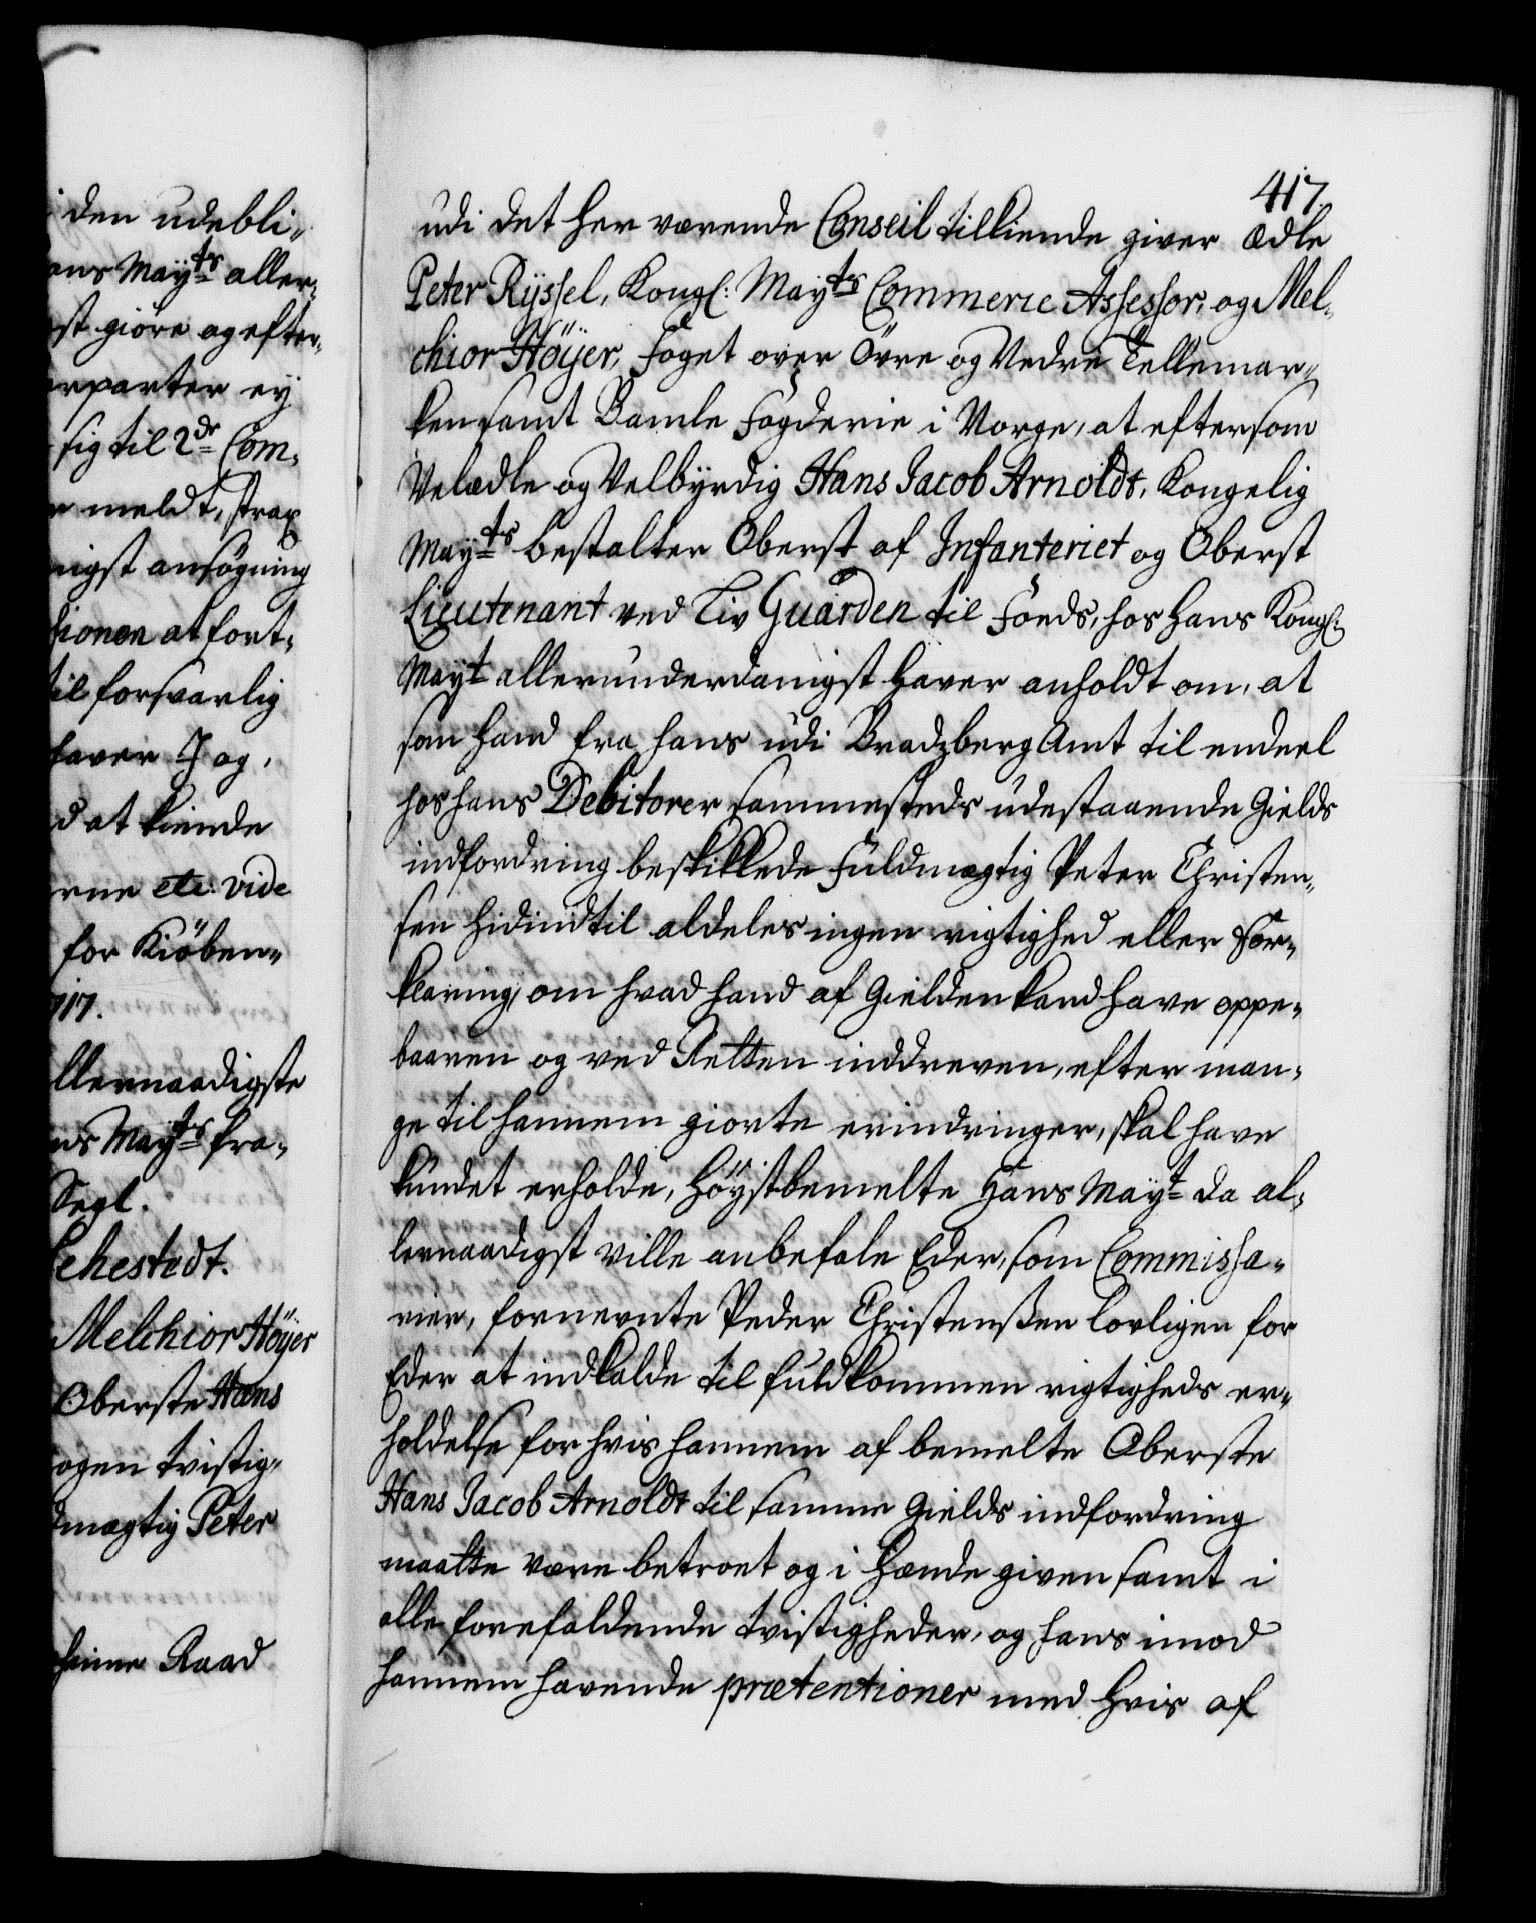 den udebli„
ans Mayts aller„
st giöre og efter„
erparter ey
sig til 2de Com„
meldt, strax
nigst ansögning
sionen at fort„
til forsvarlig
haver I og,
d at kiende
erne etc. vide
for Kiöben„
717.
llernaadigste
ns Mayts fra„
Segl.
ehestedt.
Melchior Höÿer
Oberste Hans
ogen tvistig„
dmægtig Peter
heime Raad
417.
udi det her værende Conseil tilkiende giver Ædle
Peter Rÿssel, Kongl: Mayts Commerie Assessor, og Mel„
chior Höÿer, Foget over Övre og Nedre Tellemar„
ken samt Bamle Fogderie i Norge, at eftersom
Velædle og Velbyrdig Hans Jacob Arnoldt, Kongelig
Mayts bestalter Oberst af Infanteriet og Oberst
Lieutenant ved Liv Guarden til Foeds, hos Hans Kongl:
Mayt allerunderdanigst haver anholdt om, at
som hand fra hans udi Bradzberg Amt til endeel
hos hans Debitorer sammesteds udestaaende Gields
indfordring beskikkede Fuldmægtig Peter Christen„
sen hidindtil aldeles ingen rigtighed eller For„
klaring, om hvad hand af Gielden kand have oppe„
baaren og ved Retten inddreven, efter man„
ge til hannem giorte erindringer, skal have
kundet erholde, Höÿstbemelte Hans Maÿt da al„
lernaadigst ville anbefale Eder, som Commissa„
rier, fornevnte Peder Christenßen lovligen for
Eder at indkalde til fuldkommen rigtigheds er„
holdelse for hvis hannem af bemelte Oberste
Hans Jacob Arnoldt til samme Gields indfordring
maatte være betroet og i Hænde given samt i
alle forefaldende tvistigheder, og hans imod
hannem havende prætentioner med hvis af